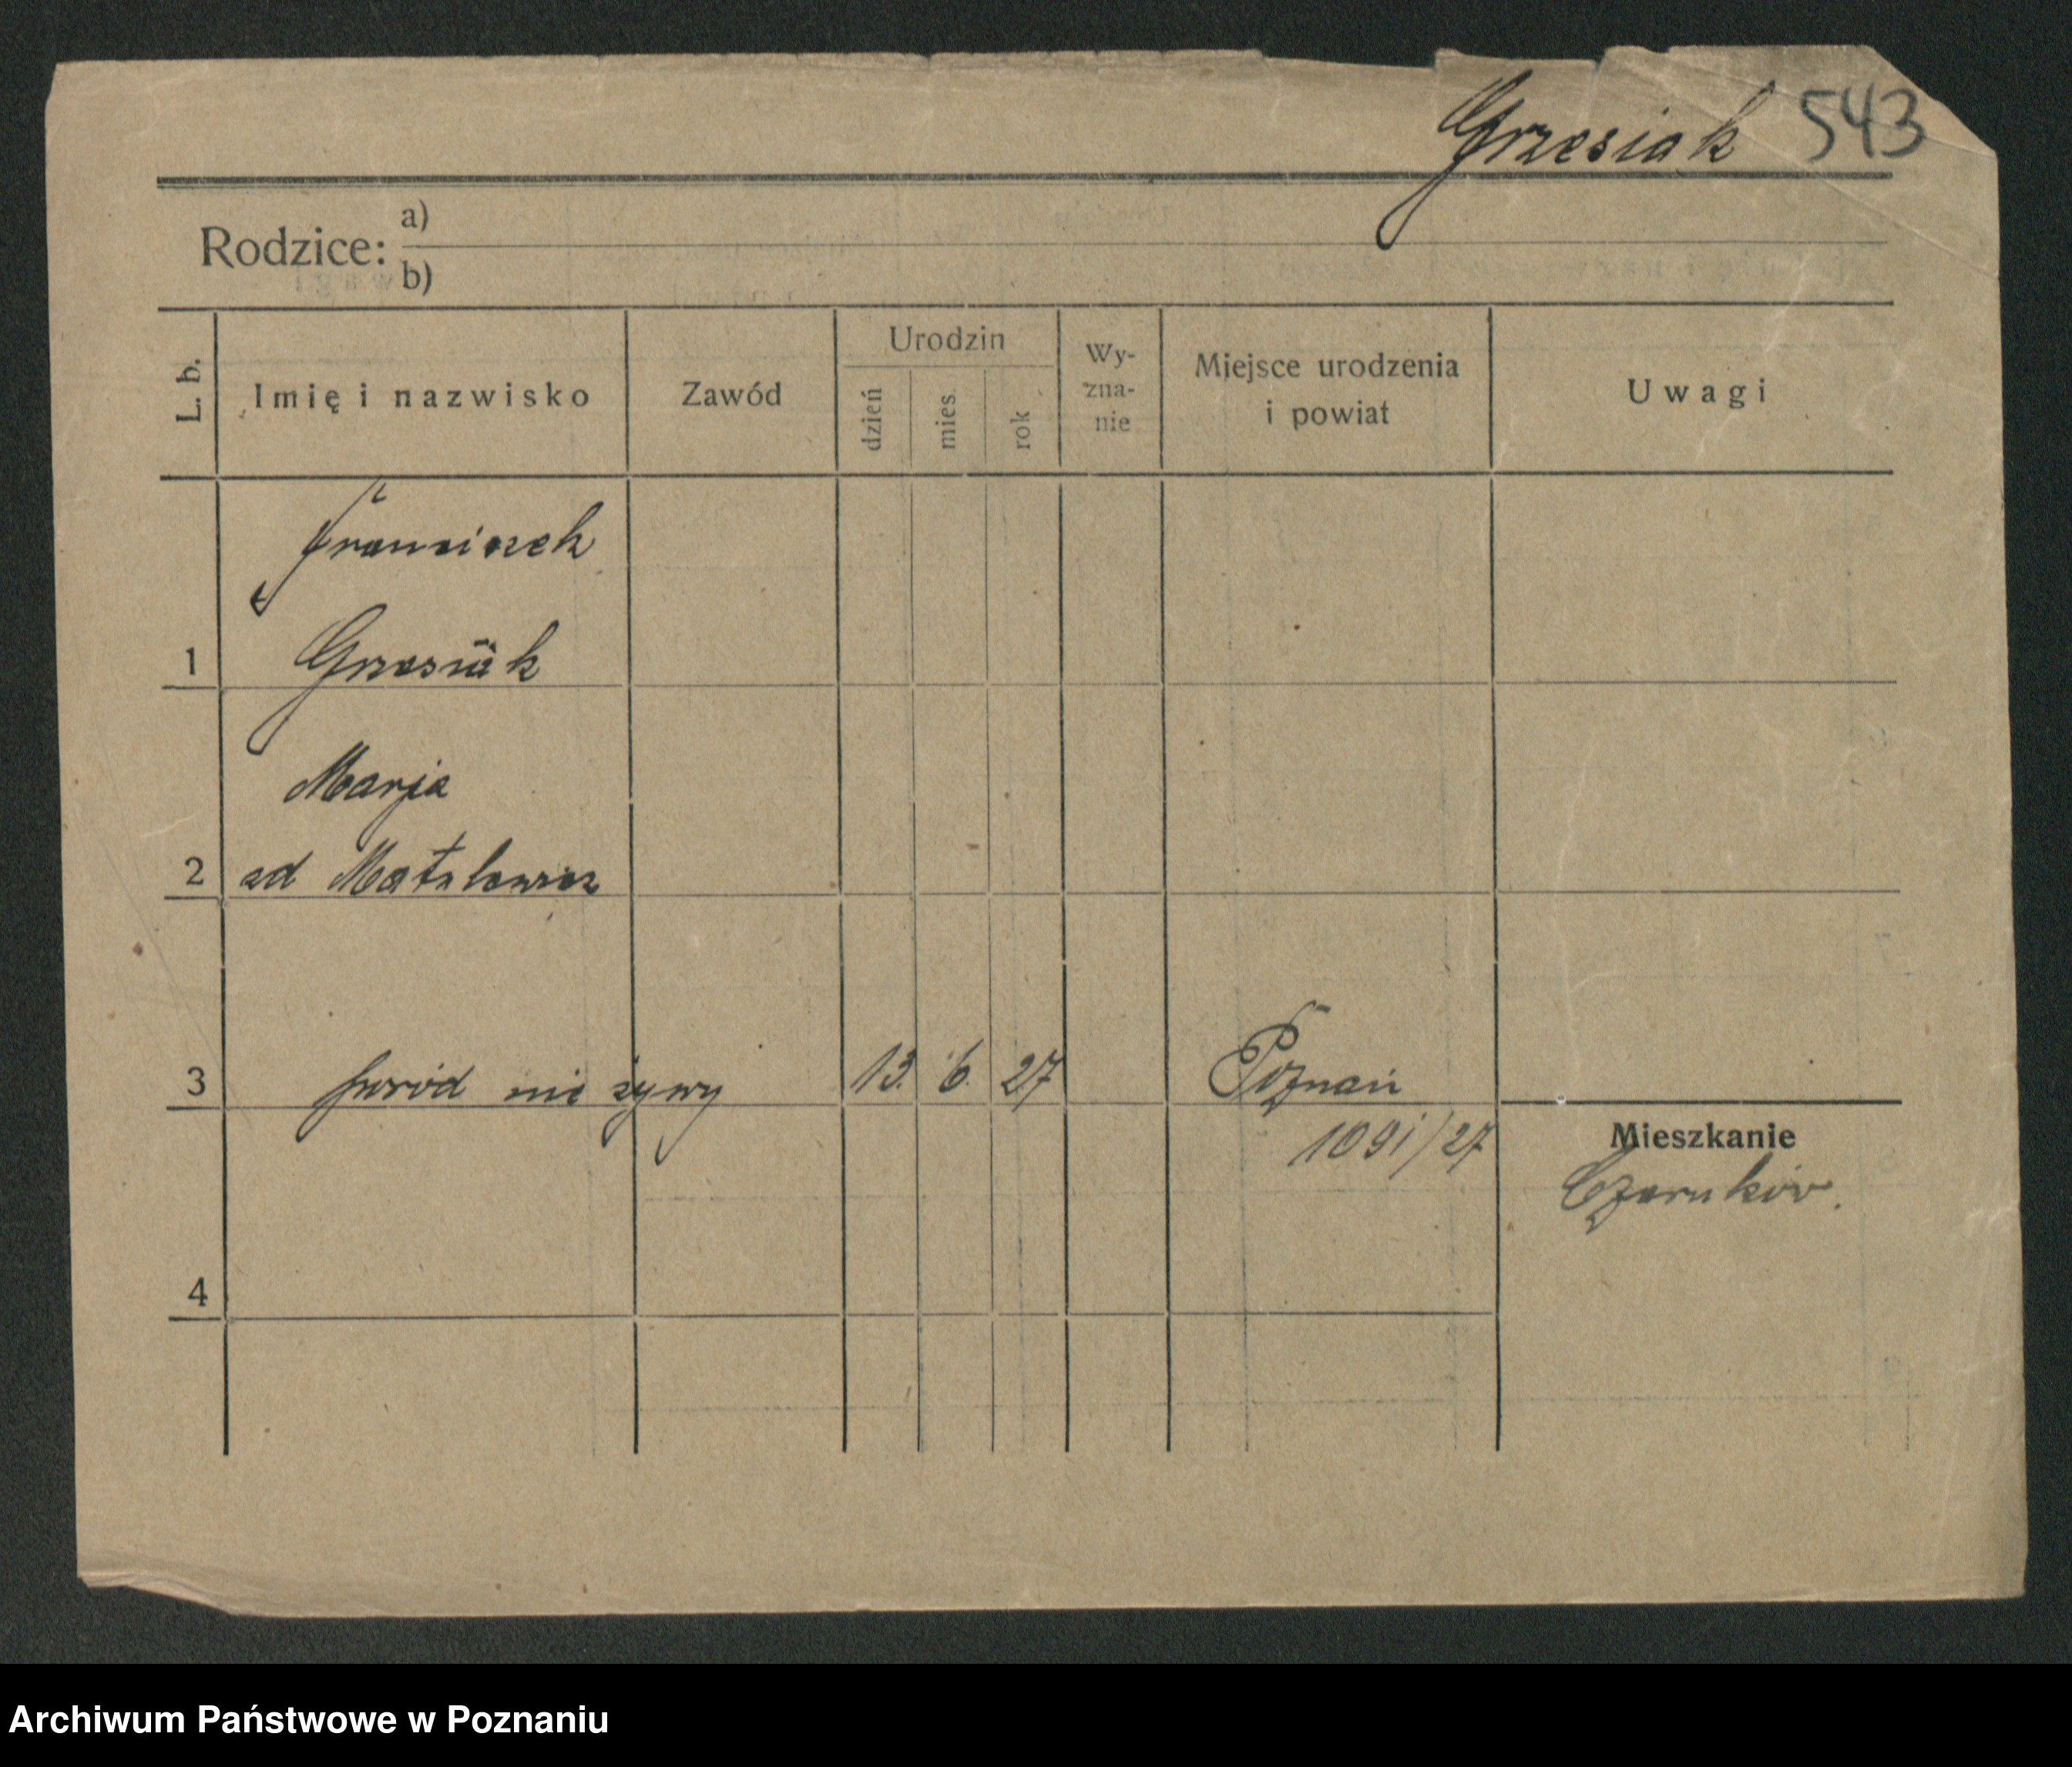 Grzesiak 543
Rodzice: a)
b)
L. b.
Imię i nazwisko
Zawód
Urodzin
dzień
mies.
rok
Wy-
zna-
nie
Miejsce urodzenia
i powiat
Uwagi
Franciszek
1 Grzesiak
Marja
2
3 poród nie żywy 13. 6. 27 Poznań
1091/27
Mieszkanie
Czarnków.
4
Archiwum Państwowe w Poznaniu